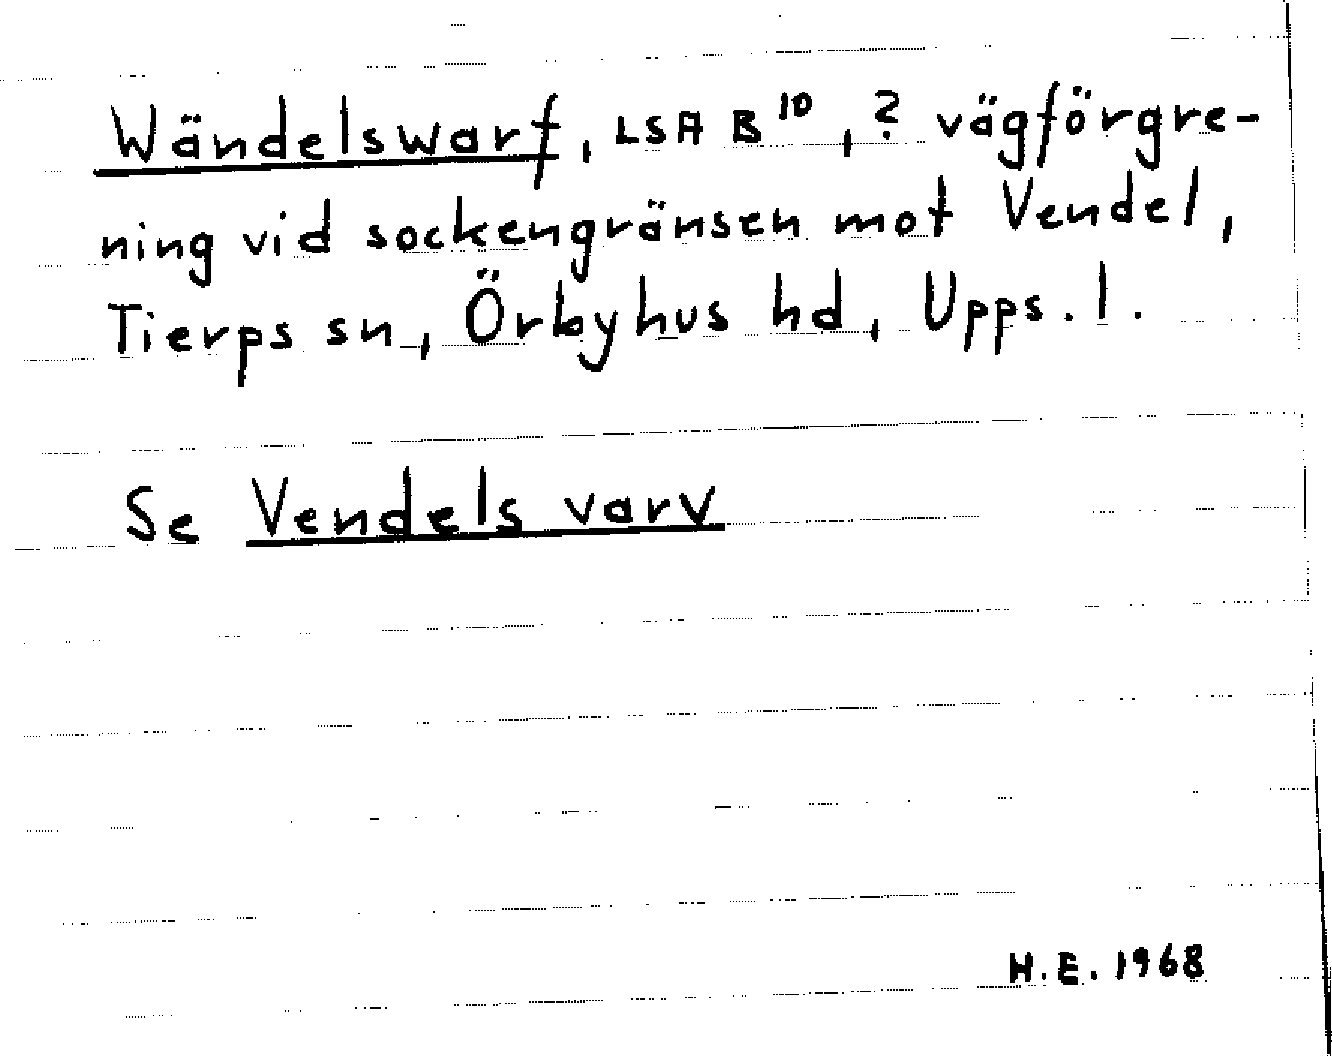 Wändelswarf, LSA B¹⁰, ? vägförgre-
ning vid sockengränsen mot Vendel,
Tierps sn, Örbyhus hd, Upps. l.
Se Vendels varv
H.E. 1968